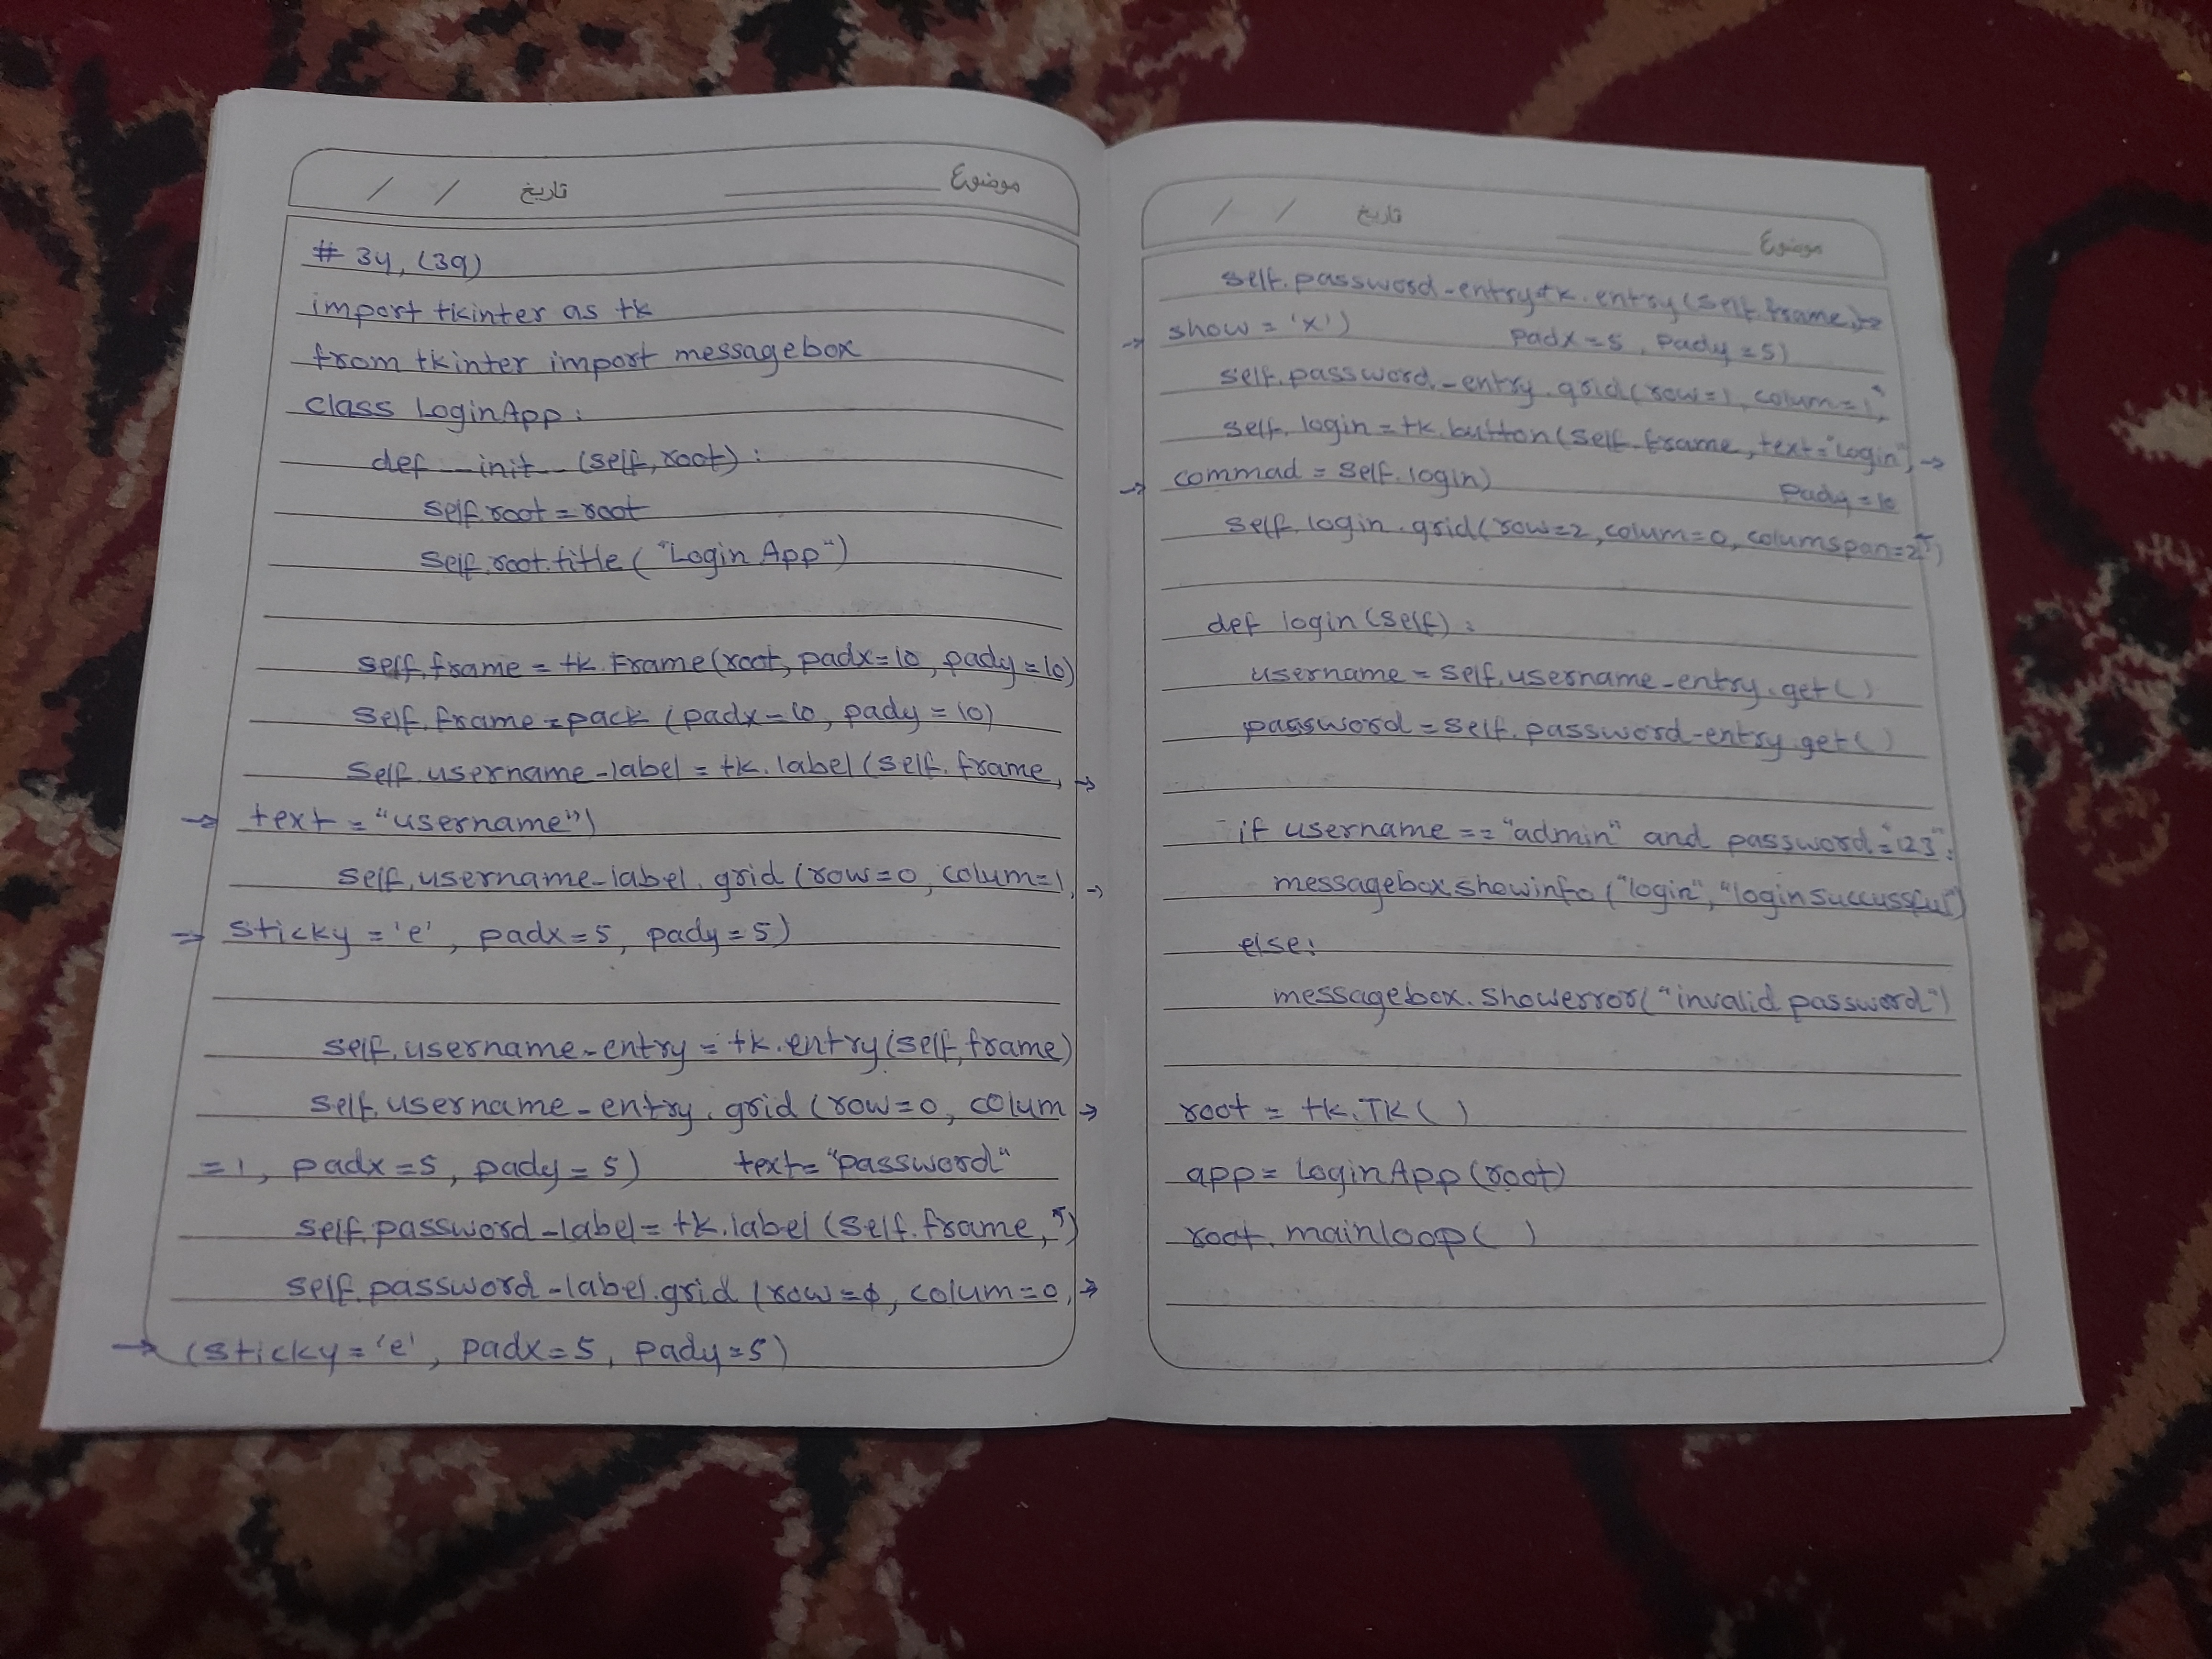 تاریخ
موضوع
# 34, (39)
import tkinter as tk
from tkinter import messagebox
class LoginApp:
def __init__(self, root):
self.root = root
self.root.title("Login App")
self.frame = tk.Frame(root, padx=10, pady=10)
self.frame = pack (padx=10, pady=10)
self.username-label = tk.label(self.frame, →
→ text = "username")
self.username-label.grid (row=0, colum=1, →
→ sticky = 'e', padx=5, pady=5)
self.username-entry = tk.entry(self,frame)
self.username-entry.grid (row=0, colum →
=1, padx=5, pady=5) text="password"
self.password-label = tk.label (self.frame, )
self.password-label.grid (row=0, colum=0, →
→ (sticky='e', padx=5, pady=5)
تاریخ
موضوع
self.password-entry tk.entry(self.frame, →
→ show = 'x')
padx=5, pady=5)
self.password-entry.grid(row=1, colum=1,
self.login = tk.button(self.frame, text="login", →
→ commad = self.login)
pady=10
self.login.grid(row=2, colum=0, columspan=2 )
def login(self):
username = self.username-entry.get()
password = self.password-entry.get()
if username == "admin" and password="123":
messagebox.showinfo("login", "login succussful")
else:
messagebox.showerror("invalid password")
root = tk.Tk( )
app = loginApp(root)
root.mainloop( )